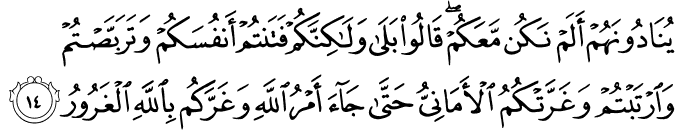 يُنَادُونَهُمۡ أَلَمۡ نَكُن مَّعَكُمۡۖ قَالُواْ بَلَىٰ وَلَٰكِنَّكُمۡ فَتَنتُمۡ أَنفُسَكُمۡ وَتَرَبَّصۡتُمۡ
وَٱرۡتَبۡتُمۡ وَغَرَّتۡكُمُ ٱلۡأَمَانِيُّ حَتَّىٰ جَآءَ أَمۡرُ ٱللَّهِ وَغَرَّكُم بِٱللَّهِ ٱلۡغَرُورُ ١٤